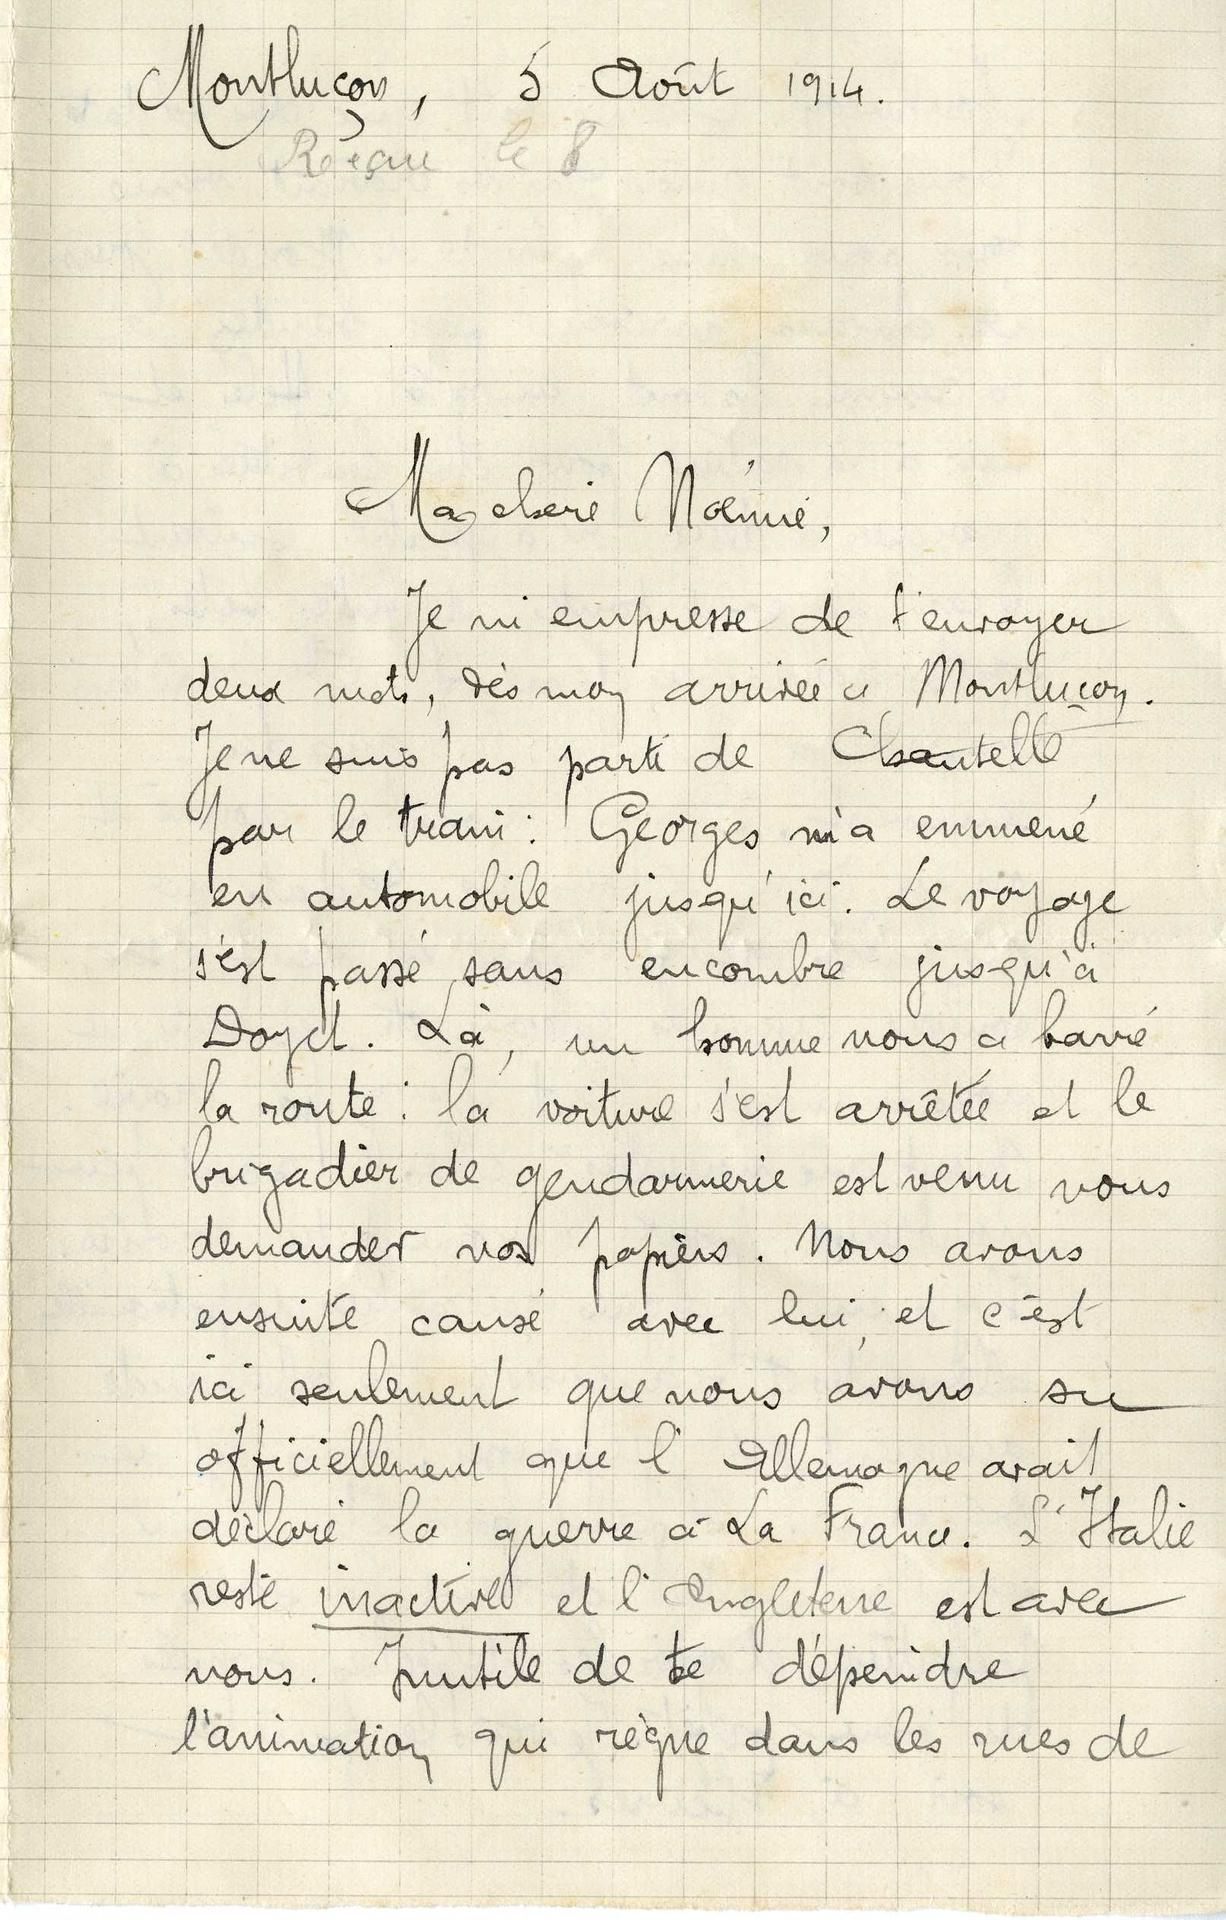 Montluçon, 5 Août 1914.
Reçue le 8
Ma chérie Noémie,
Je m'empresse de t'envoyer
deux mots, dès mon arrivée à Montluçon.
Je ne suis pas parti de Chantelle
par le train : Georges m'a emmené
en automobile jusqu'ici. Le voyage
s'est passé sans encombre jusqu'à
Doyet. Là, un homme nous a barré
la route : la voiture s'est arrêtée et le
brigadier de gendarmerie est venu nous
demander nos papiers. Nous avons
ensuite causé avec lui, et c'est
ici seulement que nous avons su
officiellement que l'Allemagne avait
déclaré la guerre à La France. L'Italie
reste inactive et l'Angleterre est avec
nous. Inutile de te dépeindre
l'animation qui règne dans les rues de